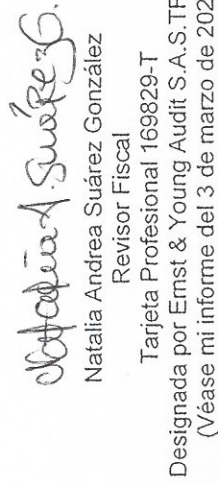 Natalia A. Suárez G.
Natalia Andrea Suárez González
Revisor Fiscal
Tarjeta Profesional 169829-T
Designada por Ernst & Young Audit S.A.S.TF
(Véase mi informe del 3 de marzo de 202